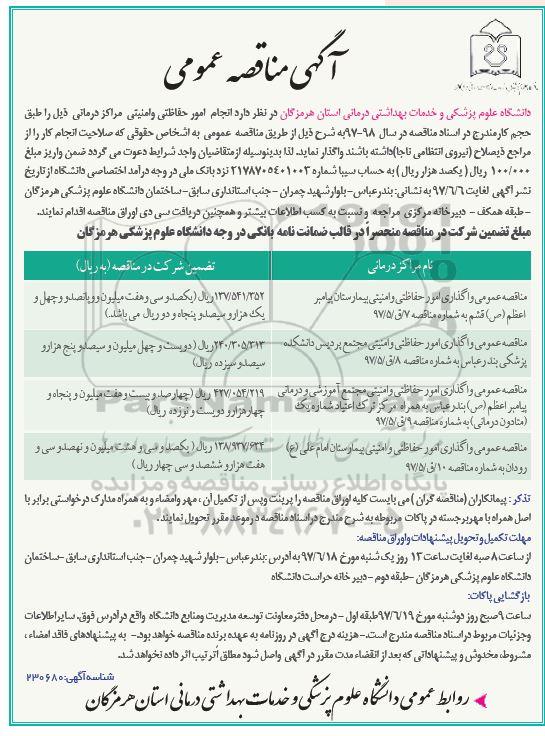 آگهی مناقصه عمومی
دانشگاه علوم پزشکی و خدمات بهداشتی درمانی استان هرمزگان در نظر دارد انجام امور حفاظتی وامنیتی مراکز درمانی ذیل را طبق
حجم کارمندرج در اسناد مناقصه در سال ۹۸-۹۷به شرح ذیل از طریق مناقصه عمومی به اشخاص حقوقی که صلاحیت انجام کار را از
مراجع ذیصلاح (نیروی انتظامی ناجا)داشته باشند واگذار نماید. لذا بدینوسیله ازمتقاضیان واجد شرایط دعوت می گردد ضمن واریز مبلغ
۱۰۰/۰۰۰ ریال ( یکصد هزار ریال ) به حساب سیبا شماره ۲۱۷۸۷۰۵۴۰۱۰۰۳ نزد بانک ملی در وجه درآمد اختصاصی دانشگاه از تاریخ
نشر آگهی لغایت ۹۷/۶/۶ به نشانی: بندرعباس-بلوارشهید چمران -جنب استانداری سابق-ساختمان دانشگاه علوم پزشکی هرمزگان
-طبقه همکف - دبیرخانه مرکزی مراجعه و نسبت به کسب اطلاعات بیشتر و همچنین دریافت سی دی اوراق مناقصه اقدام نمایند.
مبلغ تضمین شرکت در مناقصه منحصراً در قالب ضمانت نامه بانکی در وجه دانشگاه علوم پزشکی هرمزگان
نام مراکز درمانی
تضمین شرکت در مناقصه (به ریال)
مناقصه عمومی واگذاری امور حفاظتی وامنیتی بیمارستان پیامبر
اعظم (ص) قشم به شماره مناقصه ۷/ق/۹۷/۵
۱۳۷/۵۴۱/۳۵۲ ریال (یکصدو سی و هفت میلیون و پانصدو چهل و
یک هزارو سیصدو پنجاه و دو ریال می باشد.)
مناقصه عمومی واگذاری امور حفاظتی وامنیتی مجتمع پردیس دانشکده
پزشکی بندرعباس به شماره مناقصه ۸/ق/۹۷/۵
۲۴۰/۳۰۵/۳۱۳ ریال (دویست و چهل میلیون و سیصدو پنج هزارو
سیصدو سیزده ریال)
مناقصه عمومی واگذاری امور حفاظتی وامنیتی مجتمع آموزشی و درمانی
پیامبر اعظم (ص) بندرعباس به همراه مرکز ترک اعتیاد شماره یک
(متادون درمانی) به شماره مناقصه ۹/ق/۹۷/۵
۴۲۷/۰۵۴/۲۱۹ ریال (چهارصدو بیست و هفت میلیون و پنجاه و
چهارهزارو دویست و نوزده ریال)
مناقصه عمومی واگذاری امور حفاظتی وامنیتی بیمارستان امام علی (ع)
رودان به شماره مناقصه ۱۰/ق/۹۷/۵
۱۳۸/۹۳۷/۶۳۴ ریال (یکصدو سی و هشت میلیون و نهصدو سی و
هفت هزارو ششصد و سی چهار ریال)
تذکر: پیمانکاران (مناقصه گران) می بایست کلیه اوراق مناقصه را پرینت وپس از تکمیل آن، مهر وامضاء و به همراه مدارک درخواستی برابر با
اصل همراه با مهربرجسته در پاکات مربوطه به شرح مندرج دراسناد مناقصه درموعد مقرر تحویل نمایند.
مهلت تکمیل و تحویل پیشنهادات واوراق مناقصه:
از ساعت ۸ صبه لغایت ساعت ۱۳ روز یک شنبه مورخ ۹۷/۶/۱۸ به آدرس :بندرعباس -بلوار شهید چمران -جنب استانداری سابق -ساختمان
دانشگاه علوم پزشکی هرمزگان -طبقه دوم -دبیر خانه حراست دانشگاه
بازگشایی پاکات:
ساعت ۹صبح روز دوشنبه مورخ ۹۷/۶/۱۹طبقه اول -درمحل دفتر معاونت توسعه مدیریت ومنابع دانشگاه واقع در آدرس فوق. سایراطلاعات
وجزئیات مربوط دراسناد مناقصه مندرج است.-هزینه درج آگهی در روزنامه به عهده برنده مناقصه خواهد بود.- به پیشنهادهای فاقد امضاء ،
مشروط، مخدوش و پیشنهاداتی که بعد از انقضاء مدت مقرر در آگهی واصل شود مطلق اًترتیب اثر داده نخواهد شد.
شناسه آگهی: ۲۳۰۶۸۰
روابط عمومی دانشگاه علوم پزشکی و خدمات بهداشتی درمانی استان هرمزگان
پایگاه اطلاع رسانی مناقصه و مزایده
۰۲۱-۸۸۳۴۹۶۷۰-۵